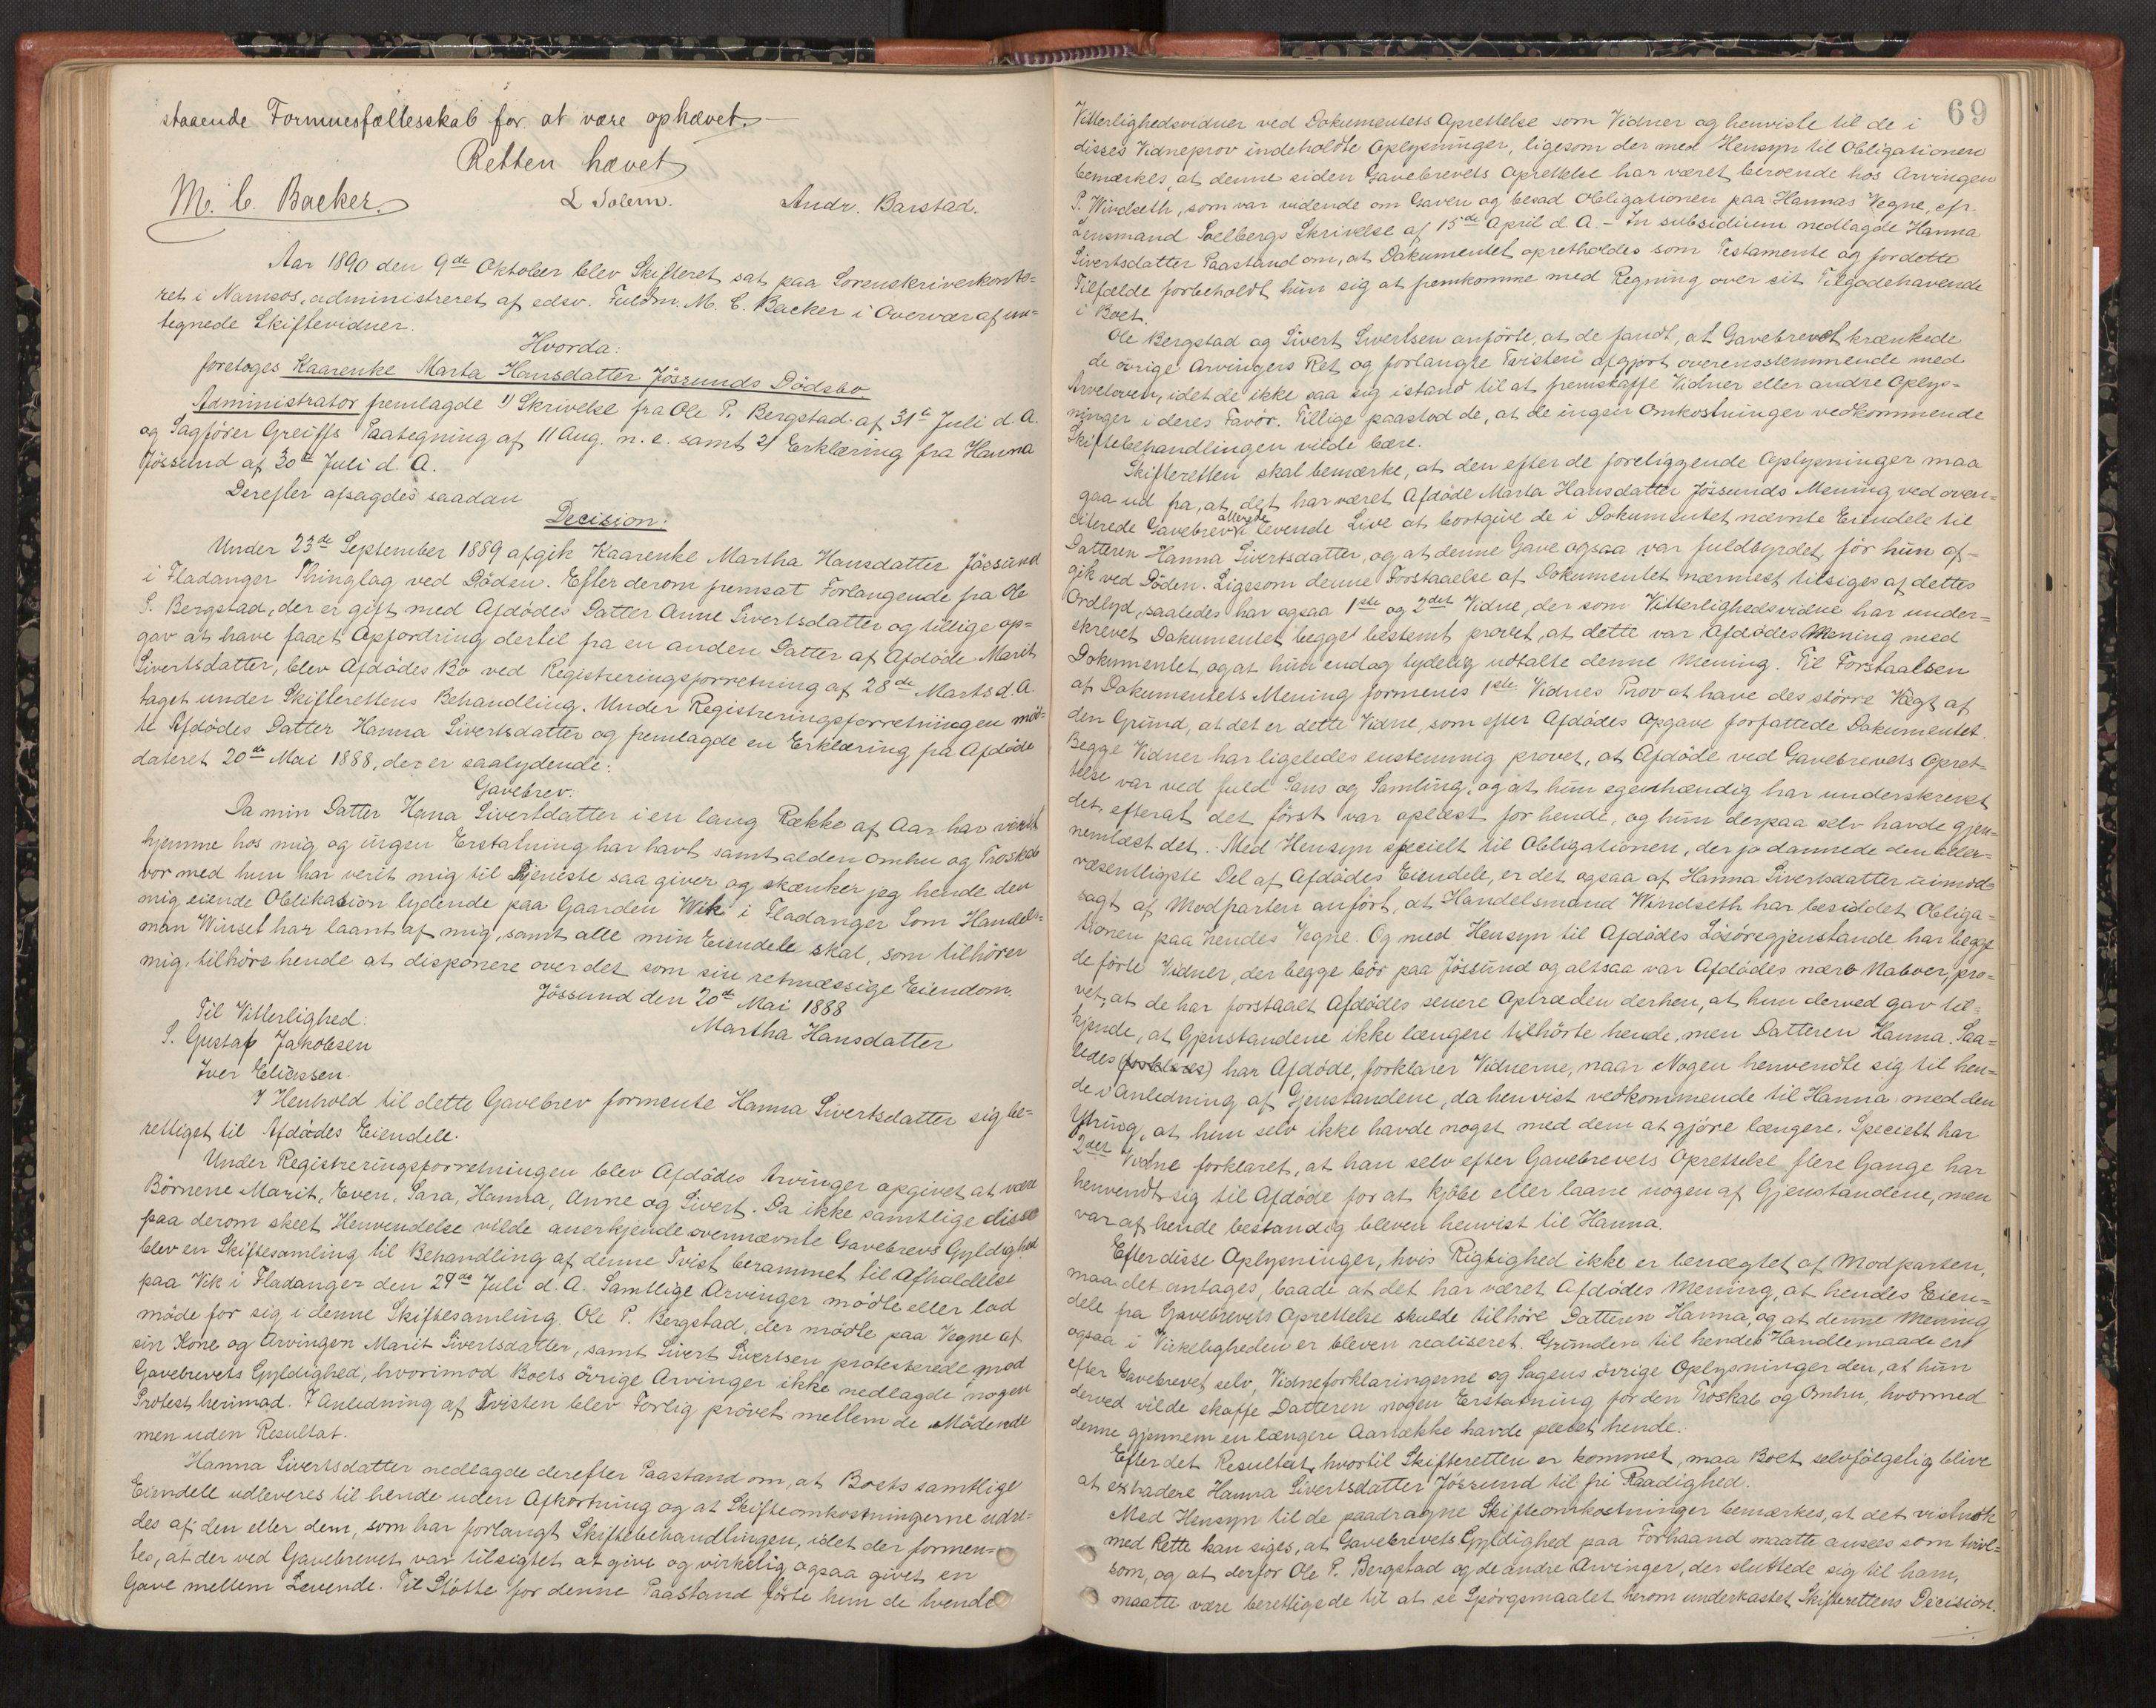 staaende Formuesfællesskab for at være ophævet.—
Retten hævet
M. C. Backer. L Solem. Andr. Barstad.
Aar 1890 den 9de Oktober blev Skifteret sat paa Sorenskriverkonto=
ret i Namsos, administreret af edsv. Fuldm. M. C. Backer i Overvær af un=
tegnede Skiftevidner.
Hvorda:
foretoges Kaarenke Marta Hansdatter Jössunds Dödsbo.
Administrator fremlagde 1) Skrivelse fra Ole P. Bergstad af 31te Juli d. A.
og Sagförer Greiffs Paategning af 11 Aug. n. e. samt 2) Erklæring fra Hanna
Jössund af 30te Juli d. A.
Derefter afsagdes saadan
Decision:
Under 23de September 1889 afgik Kaarenke Martha Hansdatter Jössund
i Fladanger Thinglag ved Döden. Efter derom fremsat Forlangende fra Ole
P. Bergstad, der er gift med Afdödes Datter Anne Sivertsdatter og tillige op=
gav at have faaet Opfordring dertil fra en anden Datter af Afdöde Marit
Sivertsdatter, blev Afdödes Bo ved Registreringsforretning af 28de Marts d. A.
taget under Skifterettens Behandling. Under Registreringsforretningen möd=
te Afdödes Datter Hanna Sivertsdatter og fremlagde en Erklæring fra Afdöde
dateret 20de Mai 1888, der er saalydende:
Gavebrev:
Da min Datter Hana Sivertdatter i en lang Række af Aar har virket
hjemme hos mig og ingen Erstatning har havt samt alden omhu og Troskab
vor med hun har verit mig til Tjeneste saa giver og skænker jeg hende den
mig eiende Oblikasion lydende paa Gaarden Wik i Fladanger Som Handels=
man Winset har laant af mig, samt alle min Eiendele skal, som tilhörer
mig, tilhöre hende at disponere over det som sin retmæssige Eiendom.
Jössund den 20de Mai 1888
Til Vitterlighed: Martha Hansdatter
S. Gustaf Jakobsen
Iver Eliassen.
I Henhold til dette Gavebrev formente Hanna Sivertsdatter sig be=
rettiget til Afdödes Eiendele.
Under Registreringsforretningen blev Afdödes Arvinger opgivet at være
Börnene Marit, Even, Sara, Hanna, Anne og Sivert. Da ikke samtlige disse
paa derom skeet Henvendelse vilde anerkjende ovennævnte Gavebrevs Gyldighed
blev en Skiftesamling til Behandling af denne Tvist berammet til Afholdelse
paa Vik i Fladanger den 29de Juli d. A. Samtlige Arvinger mödte eller lod
möde for sig i denne Skiftesamling. Ole P. Bergstad, der mödte paa Vegne af
sin Kone og Arvingen Marit Sivertsdatter, samt Sivert Sivertsen protesterede mod
Gavebrevets Gyldighed, hvorimod Boets övrige Arvinger ikke nedlagde nogen
Protest herimod. I Anledning af Tvisten blev Forlig prövet mellem de Mödende
men uden Resultat.
Hanna Sivertsdatter nedlagde derefter Paastand om, at Boets samtlige
Eiendele udleveres til hende uden Afkortning og at Skifteomkostningerne udre=
des af den eller dem, som har forlangt Skiftebehandlingen, idet der formen=
tes, at der ved Gavebrevet var tilsigtet at give og virkelig ogsaa givet en
Gave mellem Levende. Til Stötte for denne Paastand förte hun de tvende
69
Vitterlighedsvidner ved Dokumentets Oprettelse som Vidner og henviste til de i
disses Vidneprov indeholdte Oplysninger, ligesom der med Hensyn til Obligationen
bemærkes, at denne siden Gavebrevets Oprettelse har været beroende hos Arvingen
P. Windseth, som var vidende om Gaven og besad Obligationen paa Hannas Vegne, cfr.
Lensmand Sælbergs Skrivelse af 15de April d A. – In subsidium nedlagde Hanna
Sivertsdatter Paastand om, at Dokumentet opretholdes som Testamente og for dette
Tilfælde forbeholdt hun sig at fremkomme med Regning over sit Tilgodehavende
i Boet.
Ole Bergstad og Sivert Sivertsen anförte, at de fandt, at Gavebrevet krænkede
de övrige Arvingers Ret og forlangte Tvisten afgjort overensstemmende med
Arveloven, idet de ikke saa sig istand til at fremskaffe Vidner eller andre Oplys=
ninger i deres Favör. Tillige paastod de, at de ingen Omkostninger vedkommende
Skiftebehandlingen vilde bære.
Skifteretten skal bemærke, at den efter de foreliggende Oplysninger maa
gaa ud fra, at det har været Afdöde Marta Hansdatter Jössunds Mening ved oven=
citerede Gavebrev allerede i levende Live at bortgive de i Dokumentet nævnte Eiendele til
Datteren Hanna Sivertsdatter, og at denne Gave ogsaa var fuldbyrdet, för hun af=
gik ved Döden. Ligesom denne Forstaaelse af Dokumentet nærmest tilsiges af dettes
Ordlyd, saaledes har ogsaa 1ste og 2det Vidne, der som Vitterlighedsvidne har under=
skrevet Dokumentet begge bestemt provet, at dette var Afdödes Mening med
Dokumentet, og at hun endog tydelig udtalte denne Mening. Til Forstaaelsen
af Dokumentets Mening formenes 1ste Vidnes Prov at have des större Vægt af
den Grund, at det er dette Vidne, som efter Afdödes Opgave forfattede Dokumentet.
Begge Vidner har ligeledes enstemmig provet, at Afdöde ved Gavebrevets Opret=
telse var ved fuld Sans og Samling, og at hun egenhændig har underskrevet
det efterat det först var oplæst for hende, og hun derpaa selv havde gjen=
nemlæst det. Med Hensyn specielt til Obligationen, der jo dannede den aller=
væsentligste Del af Afdödes Eiendele, er det ogsaa af Hanna Sivertsdatter uimod=
sagt af Modparten anfört, at Handelsmand Windseth har besiddet Obliga=
tionen paa hendes Vegne. Og med Hensyn til Afdödes Lösöregjenstande har begge
de förte Vidner, der begge bor paa Jössund og altsaa var Afdödes nære Naboer, pro=
vet, at de har forstaaet Afdödes senere Optræden derhen, at hun derved gav til=
kjende, at Gjenstandene ikke længere tilhörte hende, men Datteren Hanna. Saa=
ledes (forklares) har Afdöde, forklarer Vidnerne, naar Nogen henvendte sig til hen=
de i Anledning af Gjenstandene, da henvist vedkommende til Hanna med den
Ytring, at hun selv ikke havde noget med dem at gjöre længere. Specielt har
2det Vidne forklaret, at han selv efter Gavebrevets Oprettelse flere Gange har
henvendt sig til Afdöde for at kjöbe eller laane nogen af Gjenstandene, men
var af hende bestandig bleven henvist til Hanna.
Efter disse Oplysninger, hvis Rigtighed ikke er benægtet af Modparten,
maa det antages, baade at det har været Afdödes Mening, at hendes Eien=
dele fra Gavebrevets Oprettelse skulde tilhöre Datteren Hanna, og at denne Mening
ogsaa i Virkeligheden er bleven realiseret. Grunden til hendes Handlemaade er
efter Gavebrevet selv, Vidneforklaringerne og Sagens övrige Oplysninger den, at hun
derved vilde skaffe Datteren nogen Erstatning for den Troskab og Omhu, hvormed
denne gjennem en længere Aarrække havde pleiet hende.
Efter det Resultat, hvortil Skifteretten er kommet, maa Boet selvfölgelig blive
at extradere Hanna Sivertsdatter Jössund til fri Raadighed.
Med Hensyn til de paadragne Skifteomkostninger bemærkes, at det vistnok
med Rette kan siges, at Gavebrevets Gyldighed paa Forhaand maatte ansees som tvivl=
som, og at derfor Ole P. Bergstad og de andre Arvinger, der sluttede sig til ham,
maatte være berettigede til at se Spörgsmaalet herom underkastet Skifterettens Decision.